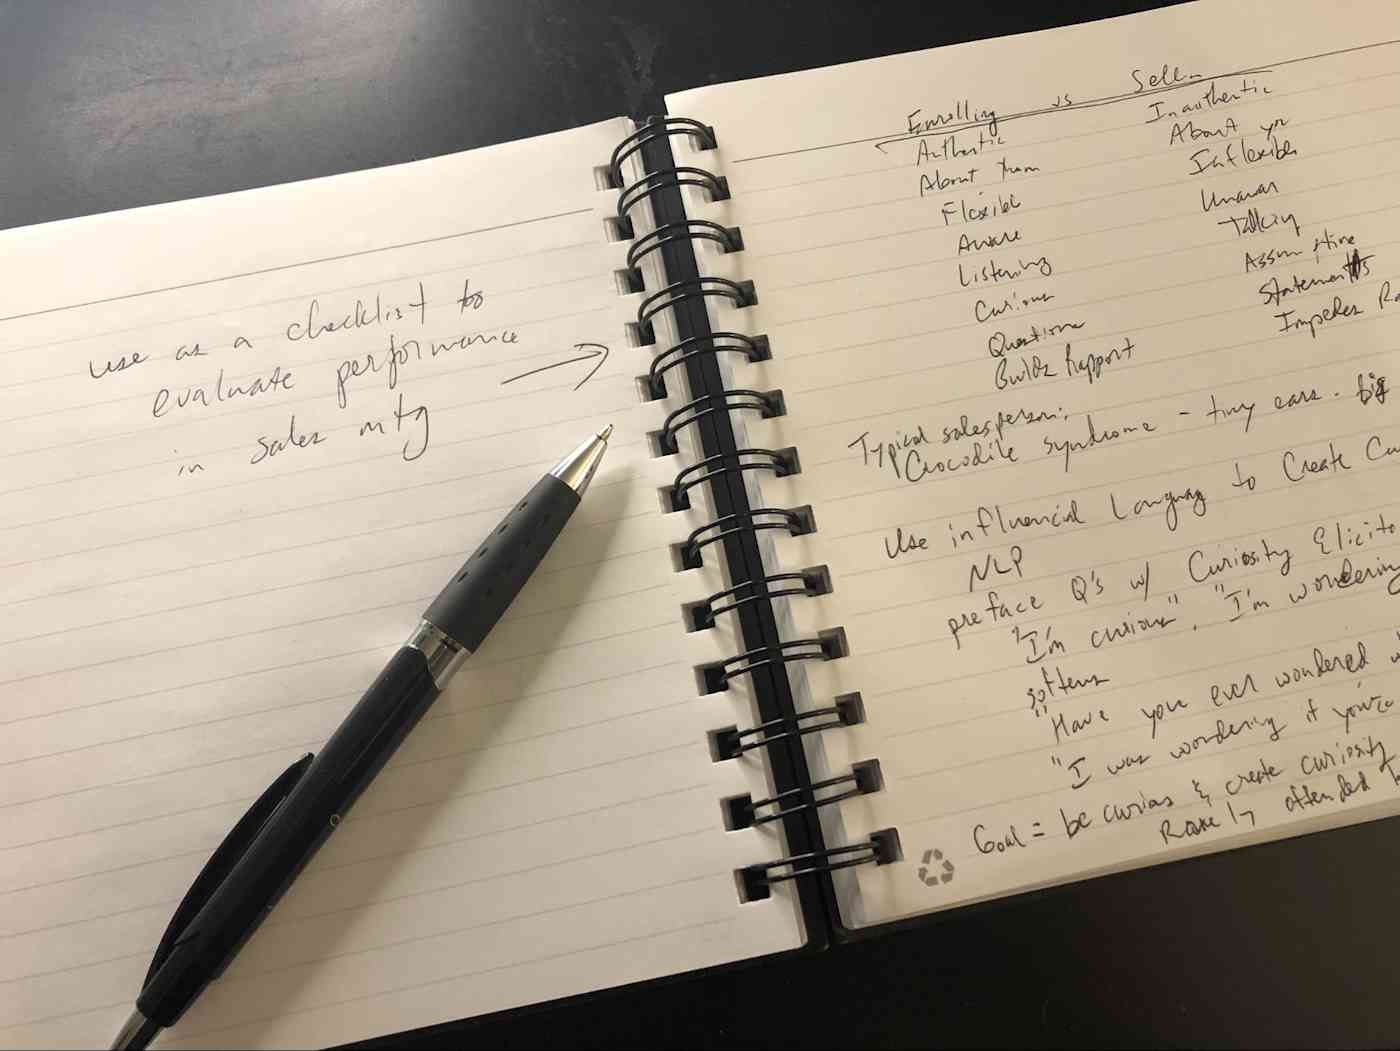 use as a checklist to
evaluate performance
in sales mtg
Enrolling vs Sellin
Authentic Inauthentic
About them About you
Flexible Inflexible
Aware Unaware
Listening Talking
Curious Assumptive
Questions Statements
Builds Rapport Impedes Ra
Typical salesperson:
Crocodile syndrome - tiny ears. big
Use influencial Language to Create Cu
NLP
preface Q's w/ Curiosity Elicito
"I'm curious". "I'm wondering
softens
"Have you ever wondered w
"I was wondering if you're
Goal = be curious & create curiosity
Rarely offended